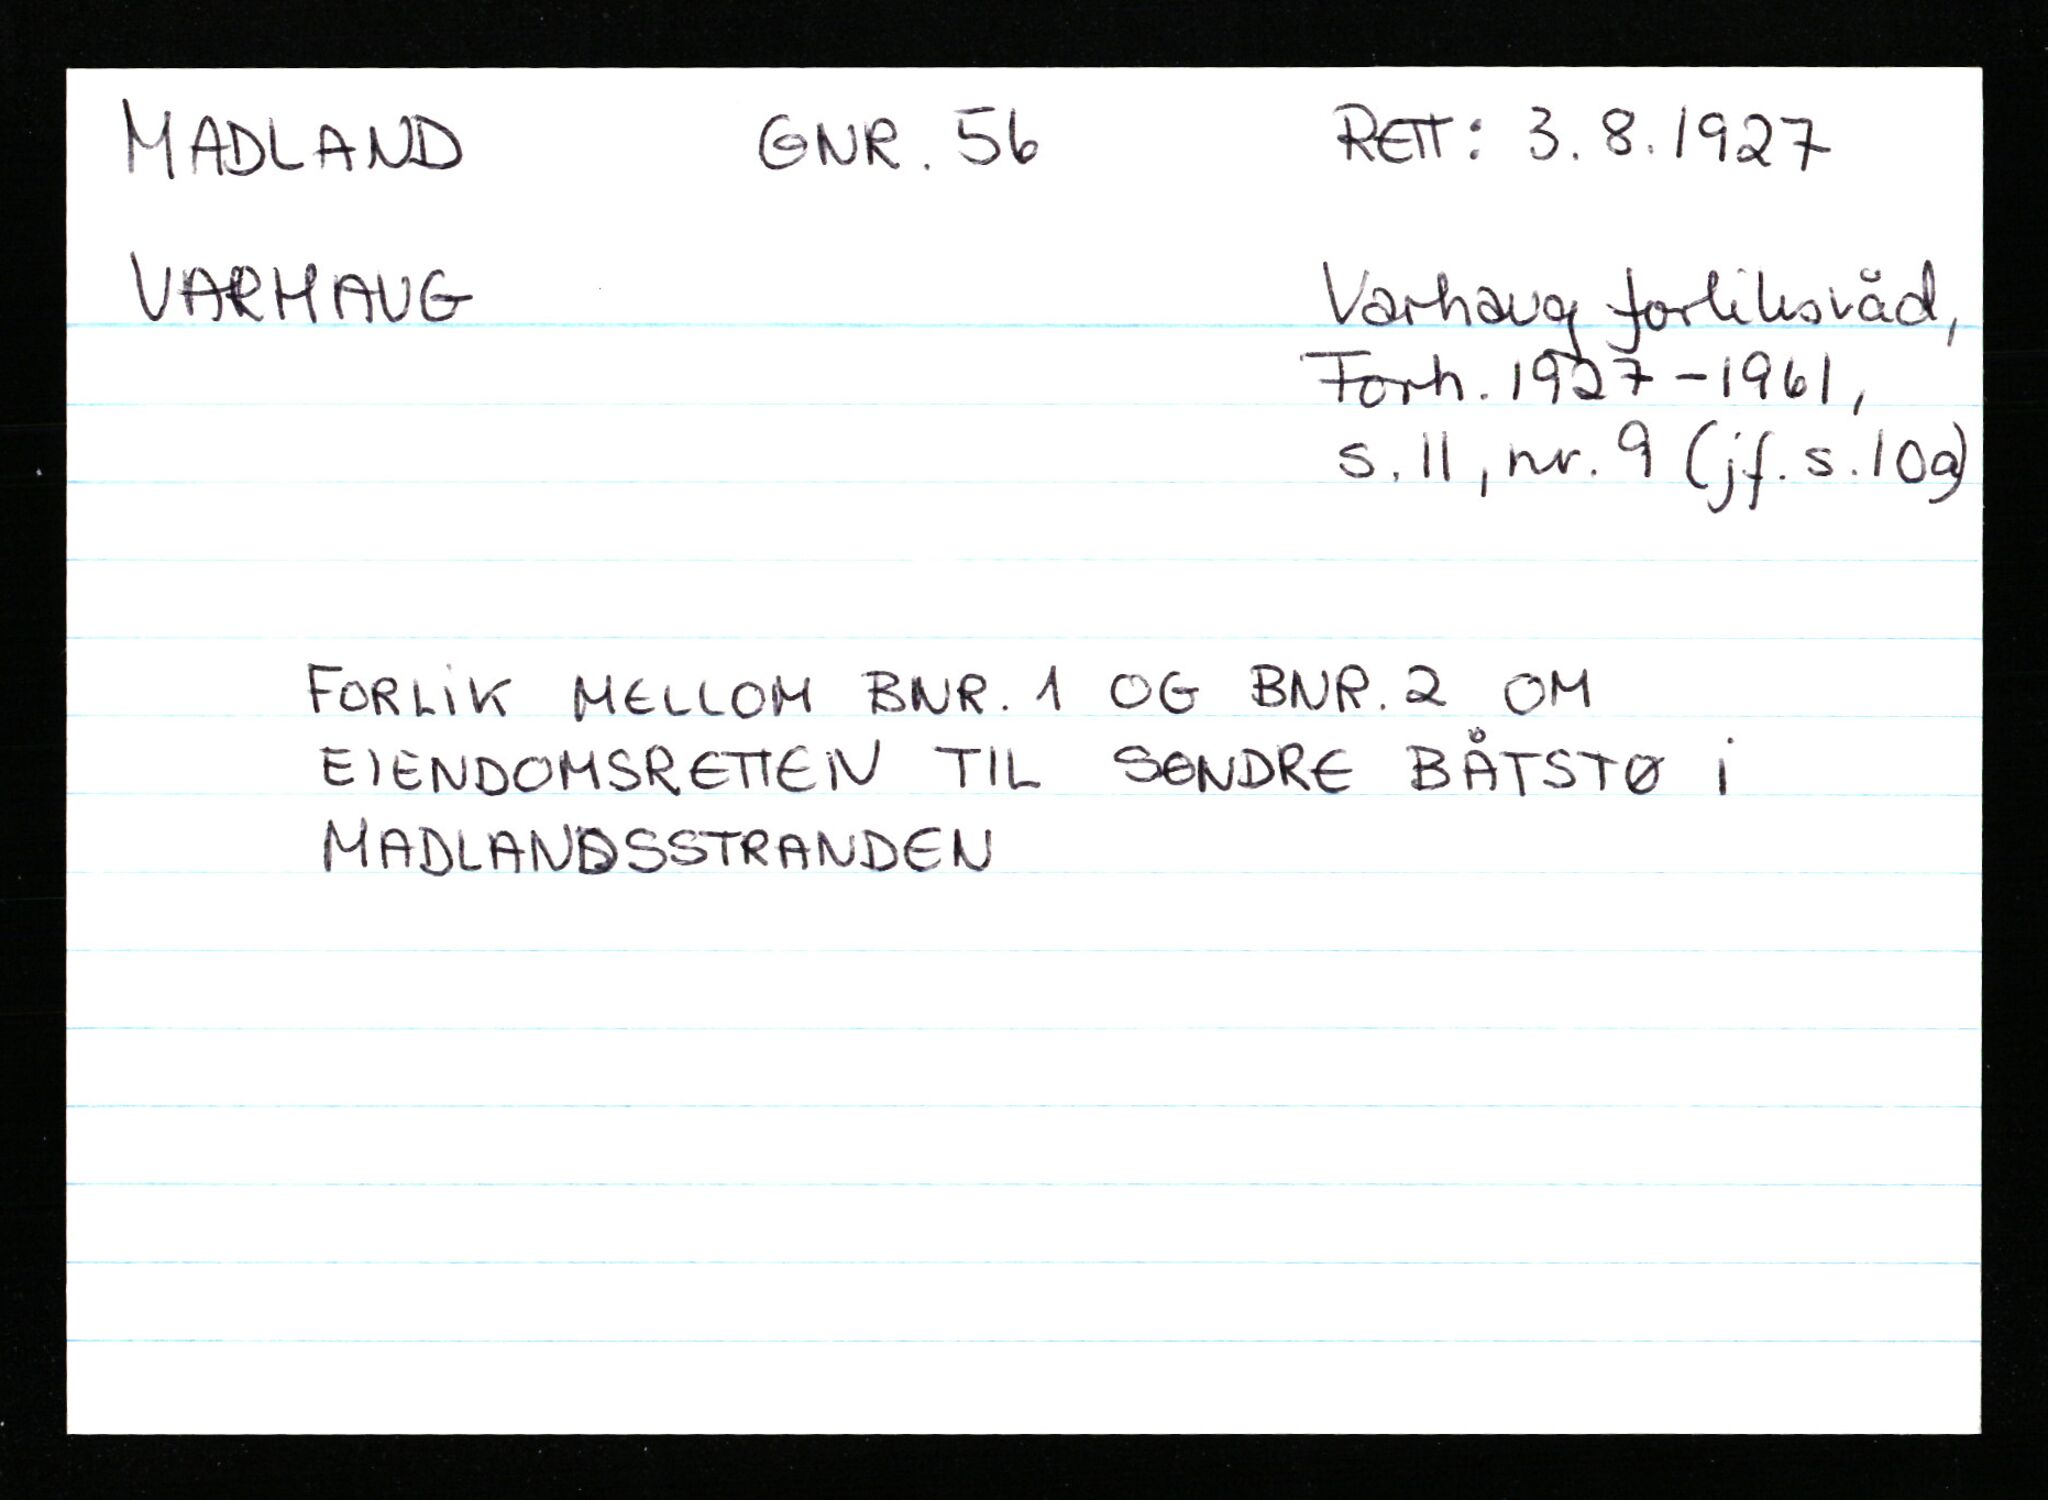 MADLAND GNR. 56 RETT: 3.8.1927
VARHAUG Varhaug forliksråd,
Forh. 1927-1961,
s. 11, nr. 9 (jf. s. 10a)
FORLIK MELLOM BNR. 1 OG BNR. 2 OM
EIENDOMSRETTEN TIL SØNDRE BÅTSTØ I
MADLANDSSTRANDEN